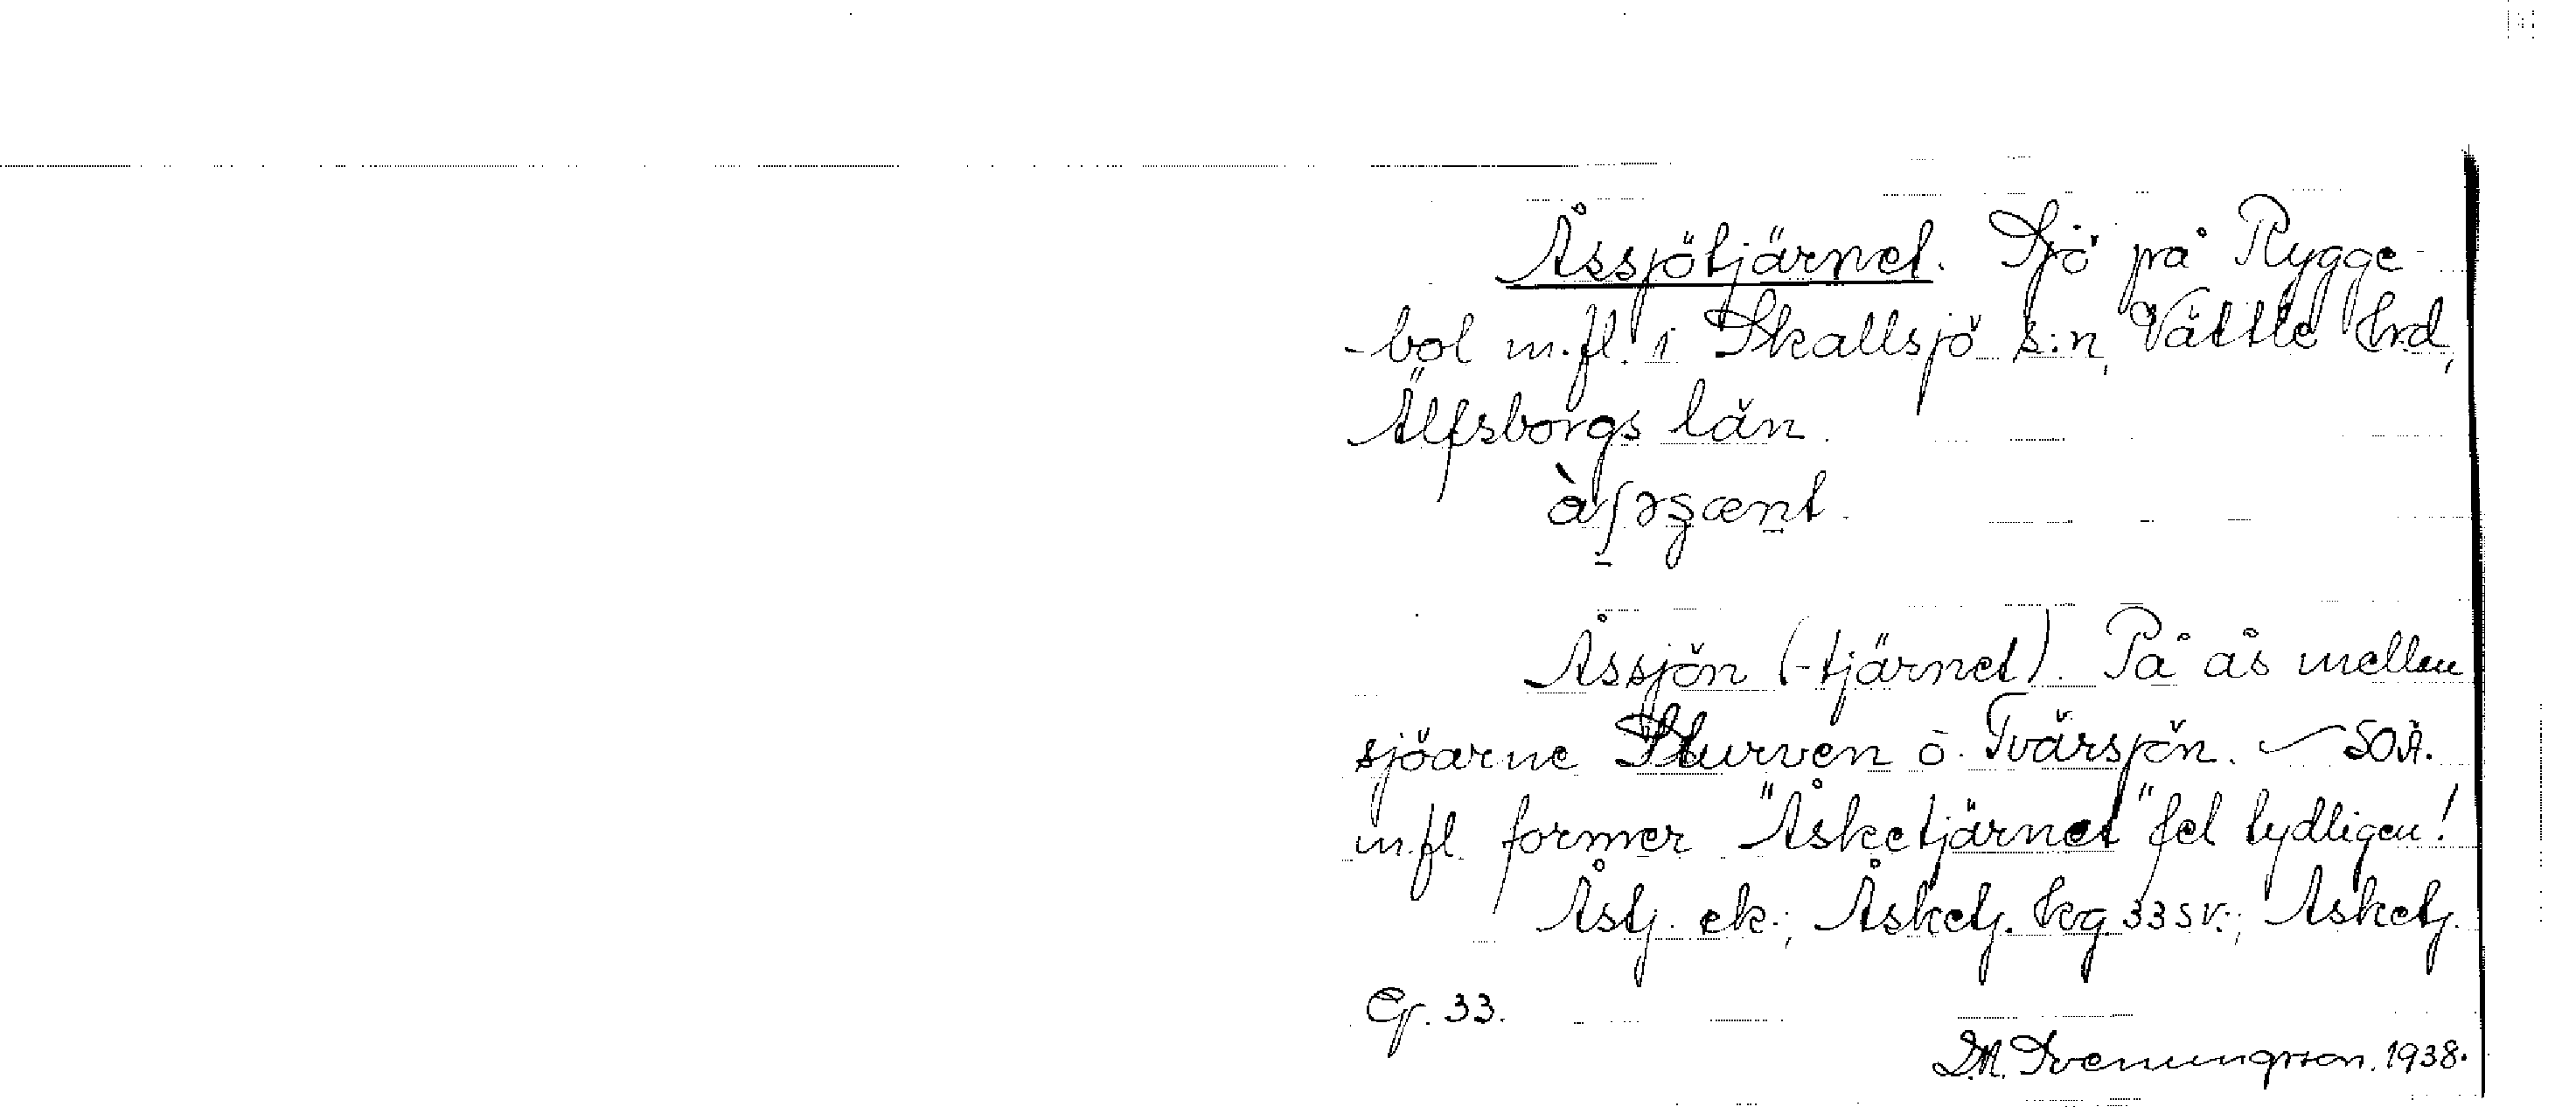 Åssjötjärnet. Sjö på Rygge-
-bol m.fl. i Skallsjö s:n, Vättle hrd,
Älfsborgs län.
Åssjön (-tjärnet). På ås mellan
sjöarne Sturven o. Tvärsjön. SOÄ.
m.fl. former "Åsketjärnet" fel tydligen!
Åstj. ek.; Åsketj. kg. 33 sv.; Åsketj.
33.
D.M. Svenungsson. 1938.